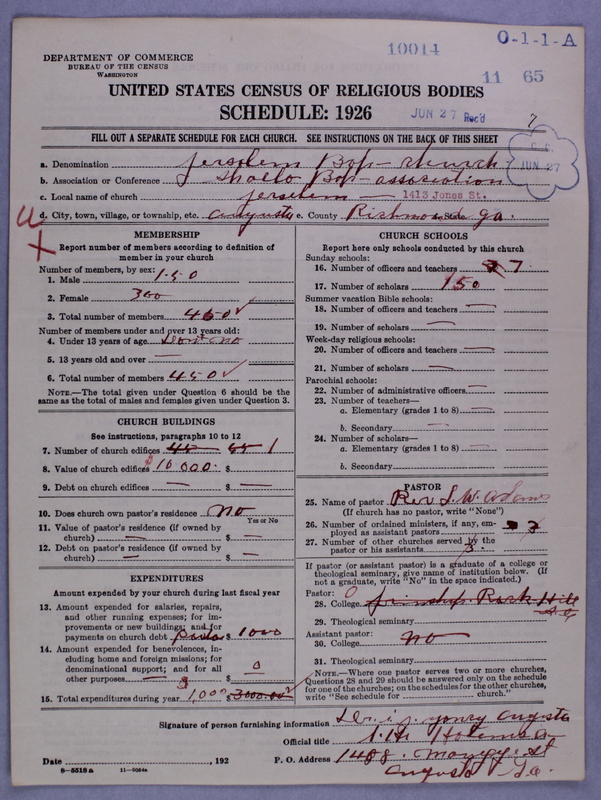 10014
O-1-1-A
DEPARTMENT OF COMMERCE
BUREAU OF THE CENSUS
WASHINGTON
11 65
UNITED STATES CENSUS OF RELIGIOUS BODIES
SCHEDULE: 1926
JUN 27 Rec'd
7
FILL OUT A SEPARATE SCHEDULE FOR EACH CHURCH. SEE INSTRUCTIONS ON THE BACK OF THIS SHEET
JUN 27
a. Denomination Jerselem Bap- church
b. Association or Conference Bap- association
c. Local name of church Jerselem 1413 Jones St.
d. City, town, village, or township, etc. Augusta e. County Richmon State Ga.
MEMBERSHIP
Report number of members according to definition of
member in your church
Number of members, by sex:
1. Male 150
2. Female 300
3. Total number of members 450
Number of members under and over 13 years old:
4. Under 13 years of age
5. 13 years old and over —
6. Total number of members 450
NOTE.—The total given under Question 6 should be the
same as the total of males and females given under Question 3.
CHURCH BUILDINGS
See instructions, paragraphs 10 to 12
7. Number of church edifices 1
8. Value of church edifices $10000. $
9. Debt on church edifices — $ —
10. Does church own pastor's residence no
Yes or No
11. Value of pastor's residence (if owned by
church) — $ —
12. Debt on pastor's residence (if owned by
church) — $ —
EXPENDITURES
Amount expended by your church during last fiscal year
13. Amount expended for salaries, repairs,
and other running expenses; for im-
provements or new buildings; and for
payments on church debt $ 1000
14. Amount expended for benevolences, in-
cluding home and foreign missions; for
denominational support; and for all
other purposes — $ 0
15. Total expenditures during year 1,000 $3000.00
CHURCH SCHOOLS
Report here only schools conducted by this church
Sunday schools:
16. Number of officers and teachers 7
17. Number of scholars 150
Summer vacation Bible schools:
18. Number of officers and teachers —
19. Number of scholars —
Week-day religious schools:
20. Number of officers and teachers —
21. Number of scholars —
Parochial schools:
22. Number of administrative officers —
23. Number of teachers—
a. Elementary (grades 1 to 8) —
b. Secondary —
24. Number of scholars—
a. Elementary (grades 1 to 8) —
b. Secondary
PASTOR
25. Name of pastor Rev S.W. Adams
(If church has no pastor, write "None")
26. Number of ordained ministers, if any, em-
ployed as assistant pastors
27. Number of other churches served by the
pastor or his assistants 3.
If pastor (or assistant pastor) is a graduate of a college or
theological seminary, give name of institution below. (If
not a graduate, write "No" in the space indicated.)
Pastor: 0
28. College Rock Hill
29. Theological seminary
Assistant pastor: no
30. College
31. Theological seminary
NOTE.—Where one pastor serves two or more churches,
Questions 28 and 29 should be answered only on the schedule
for one of the churches; on the schedules for the other churches,
write "See schedule for church."
Signature of person furnishing information
Official title
Date , 192 P. O. Address 1408 St
Augusta Ga.
8-5518a 11-9064a